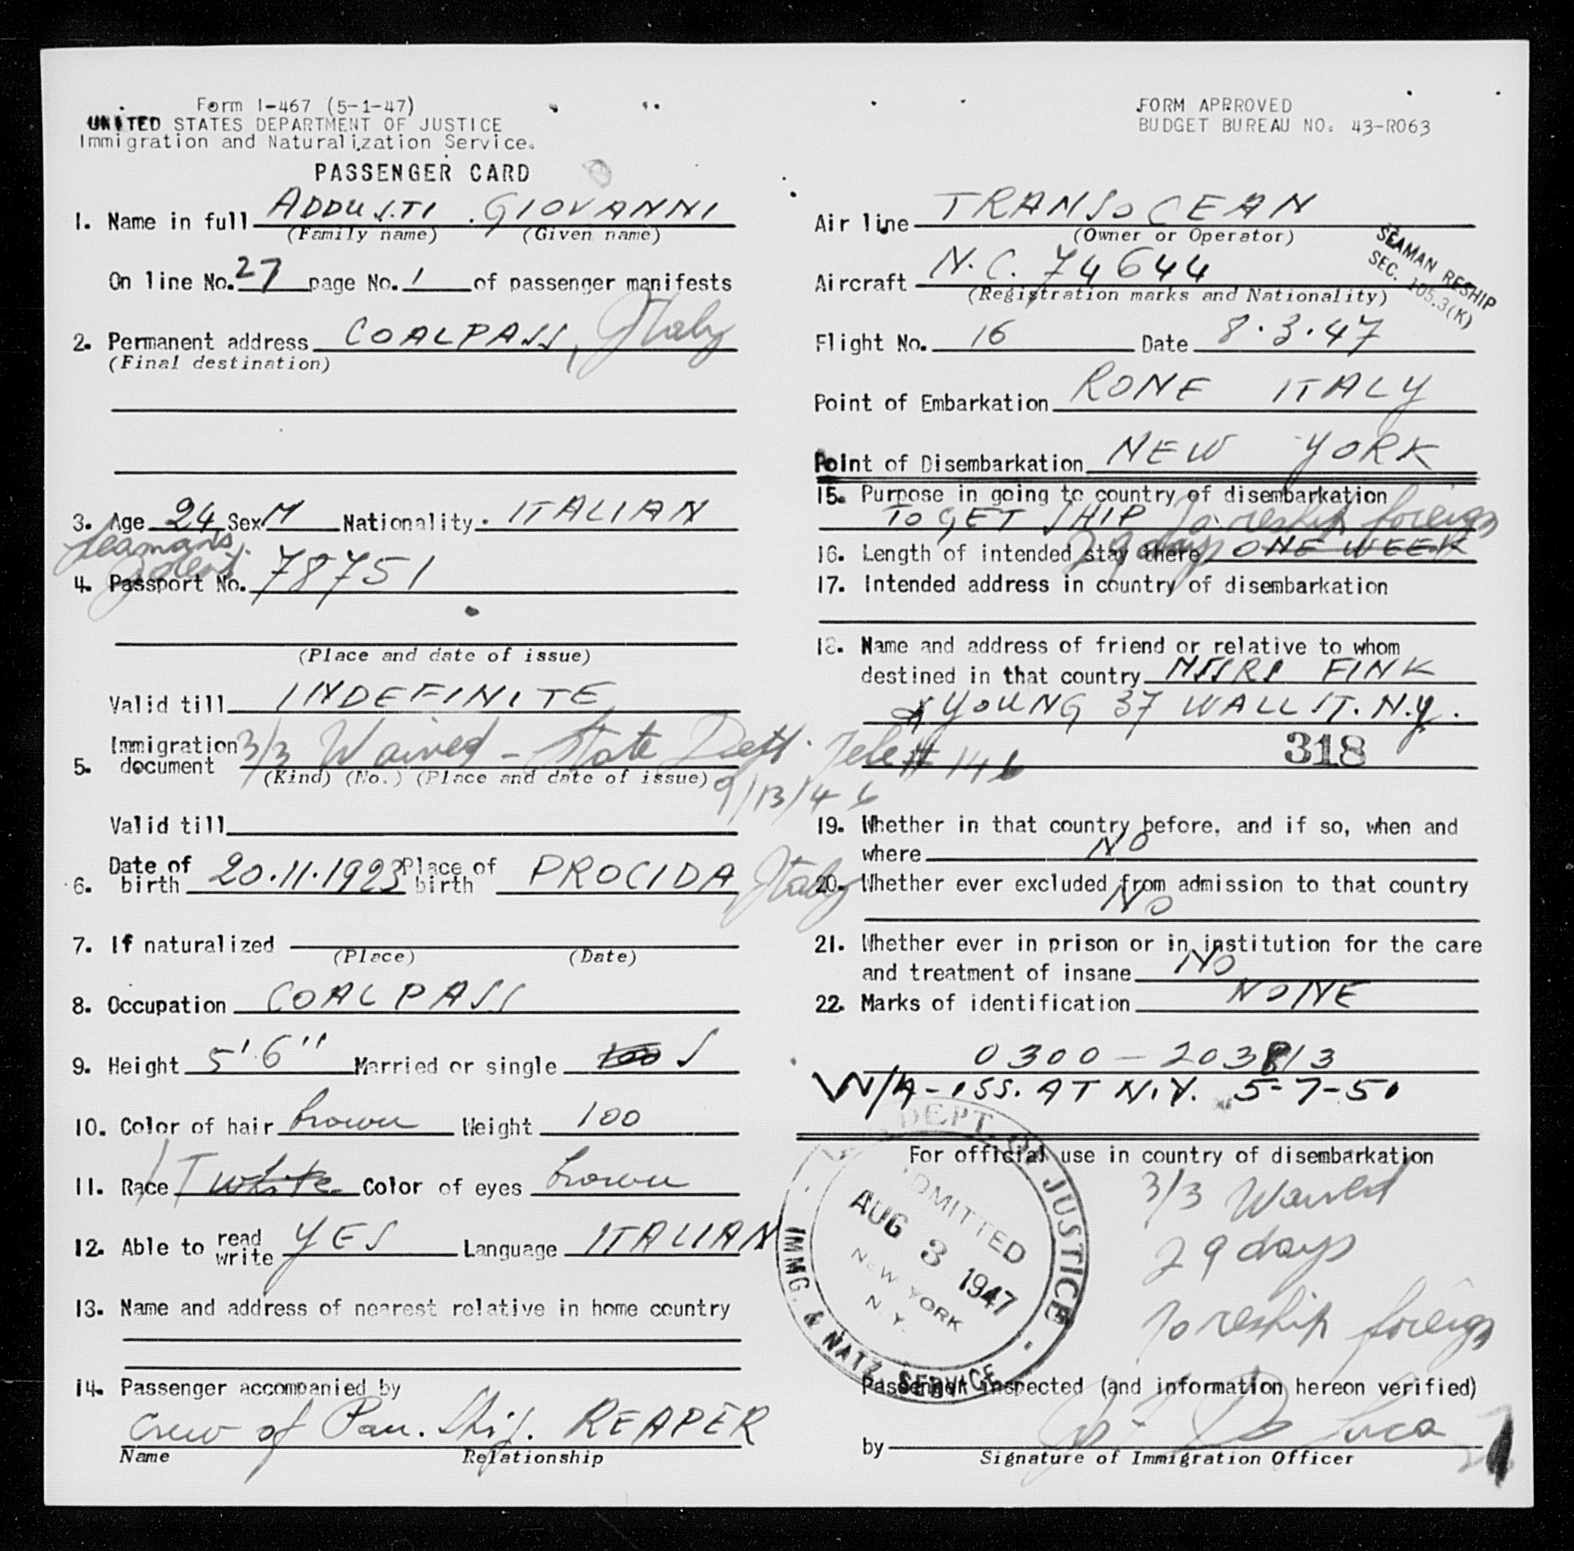 Form I-467 (5-1-47)
UNITED STATES DEPARTMENT OF JUSTICE
Immigration and Naturalization Service.
PASSENGER CARD
1. Name in full ADDUSTI GIOVANNI
(Family name) (Given name)
On line No. 27 page No. 1 of passenger manifests
2. Permanent address COALPASS, Italy
(Final destination)
3. Age 24 Sex M Nationality. ITALIAN
Seaman's
4. Passport No. 78751
(Place and date of issue)
Valid till INDEFINITE
5. Immigration document 3/3 Waived - State Dept. Tele # 146
(Kind) (No.) (Place and date of issue) 9/13/46
Valid till
6. Date of birth 20.11.1923 Place of birth PROCIDA Italy
7. If naturalized
(Place) (Date)
8. Occupation COALPASS
9. Height 5' 6" Married or single S
10. Color of hair brown Weight 100
11. Race IT white Color of eyes brown
12. Able to read write YES Language ITALIAN
13. Name and address of nearest relative in home country
14. Passenger accompanied by
Crew of Pan. Ship. REAPER
Name Relationship
FORM APPROVED
BUDGET BUREAU NO. 43-R063
Air line TRANSOCEAN
(Owner or Operator)
SEAMAN RESHIP
SEC. 105.3(K)
Aircraft N.C. 74644
(Registration marks and Nationality)
Flight No. 16 Date 8.3.47
Point of Embarkation ROME ITALY
Point of Disembarkation NEW YORK
15. Purpose in going to country of disembarkation
TO GET SHIP To reship foreign
16. Length of intended stay there 29 days ONE WEEK
17. Intended address in country of disembarkation
18. Name and address of friend or relative to whom
destined in that country MSSRS FINK
& YOUNG 37 WALL ST. N.Y.
318
19. Whether in that country before, and if so, when and
where NO
20. Whether ever excluded from admission to that country
NO
21. Whether ever in prison or in institution for the care
and treatment of insane NO
22. Marks of identification NONE
0300-203813
W/A-ISS. AT N.Y. 5-7-51
For official use in country of disembarkation
3/3 Waived
29 days
To reship foreign
DEPT. OF JUSTICE
IMMG. & NATZ. SERVICE
ADMITTED
AUG 3 1947
NEW YORK
N.Y.
Passenger inspected (and information hereon verified)
by De Luca
Signature of Immigration Officer